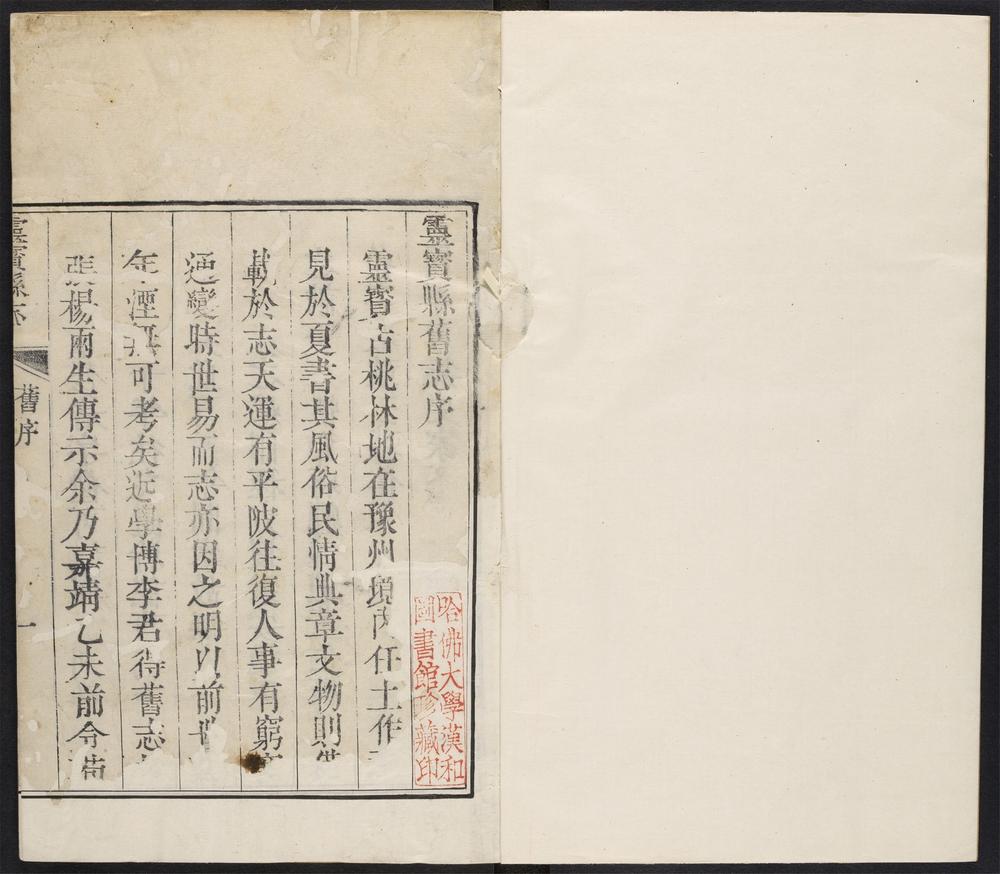 靈寶縣舊志序
靈寶古桃林地在豫州境内任土作
見於夏書其風俗民情典章文物則
載於志天運有平陂往復人事有窮
通變時世易而志亦因之明以前
年湮無可考矣近學博李君得舊志
張楊兩生傳示余乃嘉靖乙未前令
靈寶縣志
舊序
一
哈佛大學漢和
圖書館珍藏印